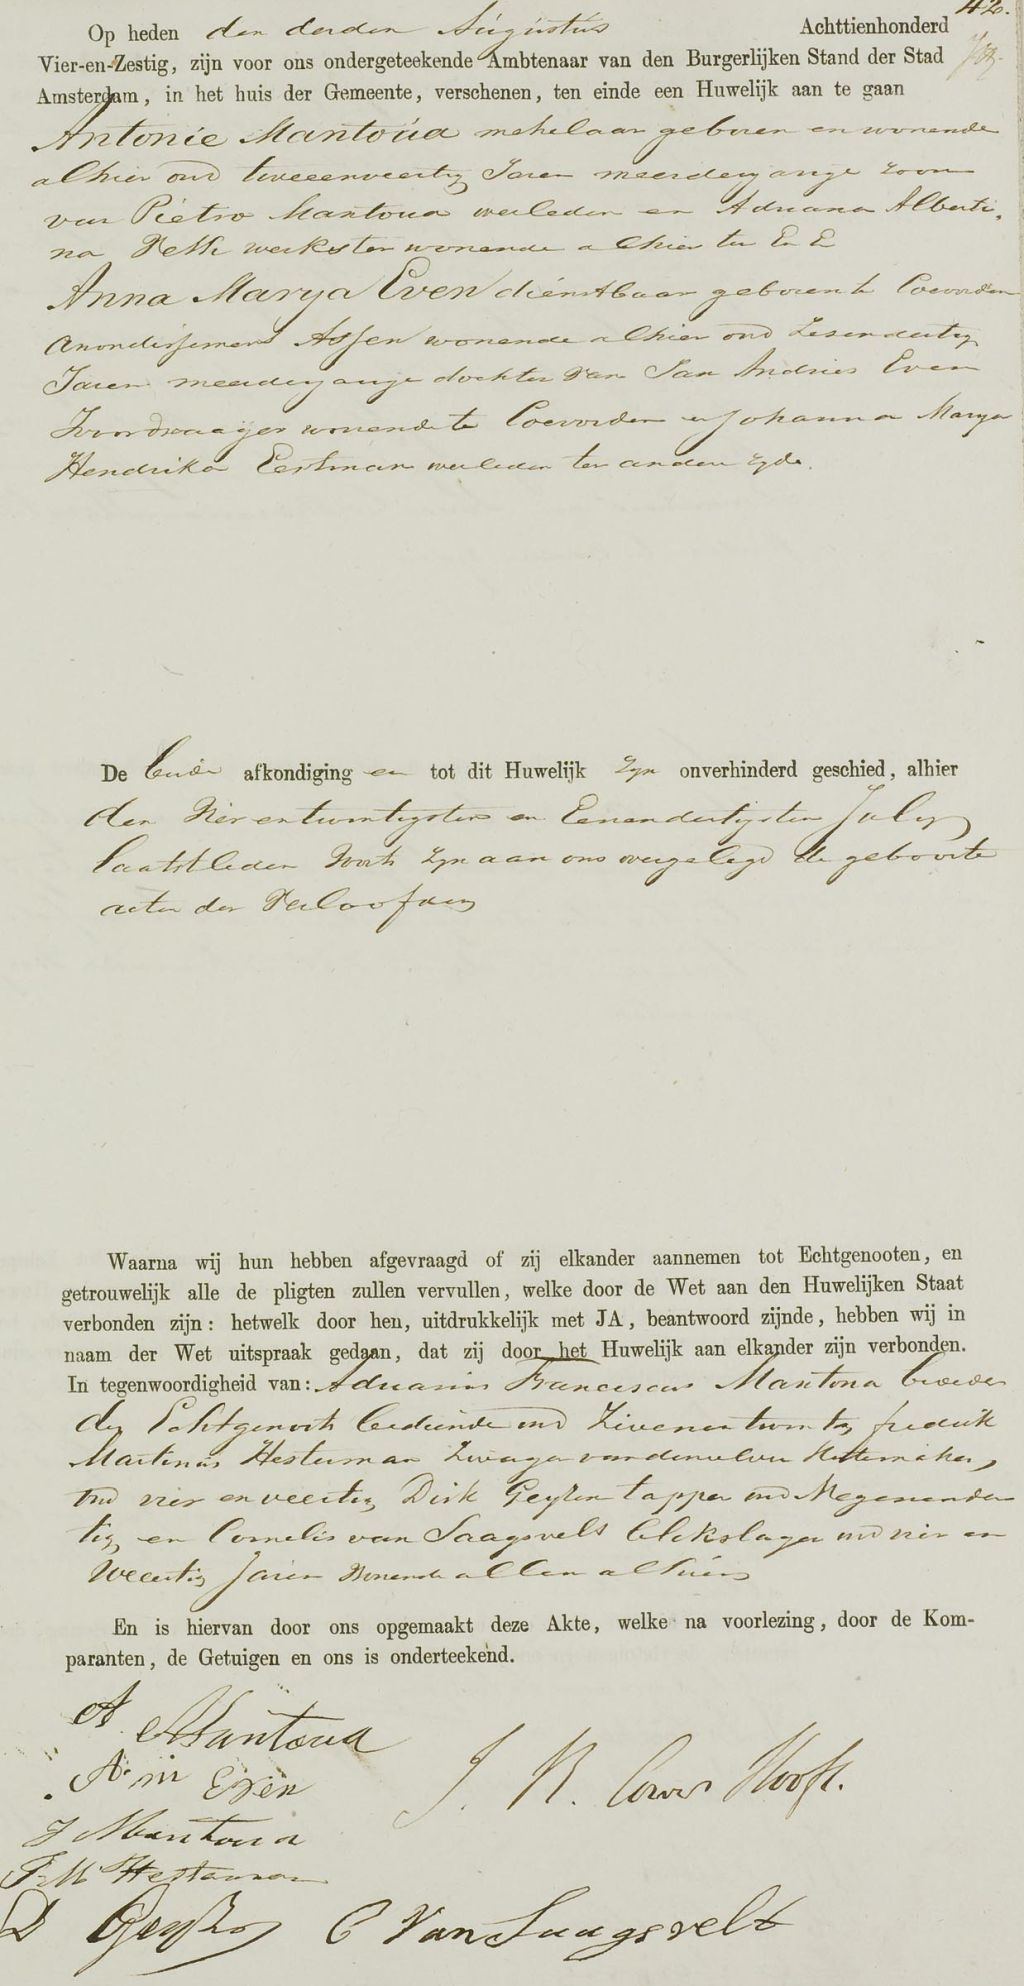 42.
Op heden den derden Augustus Achttienhonderd
Vier-en-Zestig, zijn voor ons ondergeteekende Ambtenaar van den Burgerlijken Stand der Stad
Amsterdam, in het huis der Gemeente, verschenen, ten einde een Huwelijk aan te gaan
Antonie Mantoua makelaar geboren en wonende
alhier oud tweeenveertig Jaren meerderjarige zoon
van Pietro Mantoua overleden en Adriana Alberti-
na werkster wonende alhier ter E E
Anna Marya Even dienstbaar geboren te Coevorden
Arrondissement Assen wonende alhier oud Zesendertig
Jaren meerderjarige dochter van Jan Andries Even
wonende te Coevorden en Johanna Marya
Hendrika Eestman overleden ter andere zyde.
De beide afkondiging en tot dit Huwelijk zyn onverhinderd geschied, alhier
den Vierentwintigsten en Eenendertigsten July
laatstleden Voorts zyn aan ons overgelegd de geboorte
acten der Verloofden
Waarna wij hun hebben afgevraagd of zij elkander aannemen tot Echtgenooten, en
getrouwelijk alle de pligten zullen vervullen, welke door de Wet aan den Huwelijken Staat
verbonden zijn: hetwelk door hen, uitdrukkelijk met JA, beantwoord zijnde, hebben wij in
naam der Wet uitspraak gedaan, dat zij door het Huwelijk aan elkander zijn verbonden.
In tegenwoordigheid van: Adrianus Franciscus Mantoua broeder
des Echtgenoots bediende oud Zevenentwintig, fredrik
Martinus Hesterman Zwager van denzelven
oud vier en veertig, Dirk Geyken tapper oud Negenender
tig, en Cornelis van Saagsvelt blikslager oud vier en
Veertig Jaren Wonende allen alhier
En is hiervan door ons opgemaakt deze Akte, welke na voorlezing, door de Kom-
paranten, de Getuigen en ons is onderteekend.
A Mantoua
A m Even
J Mantoua
F M Hesterman
D
C Van Saagsvelt
J. R. Hooft.